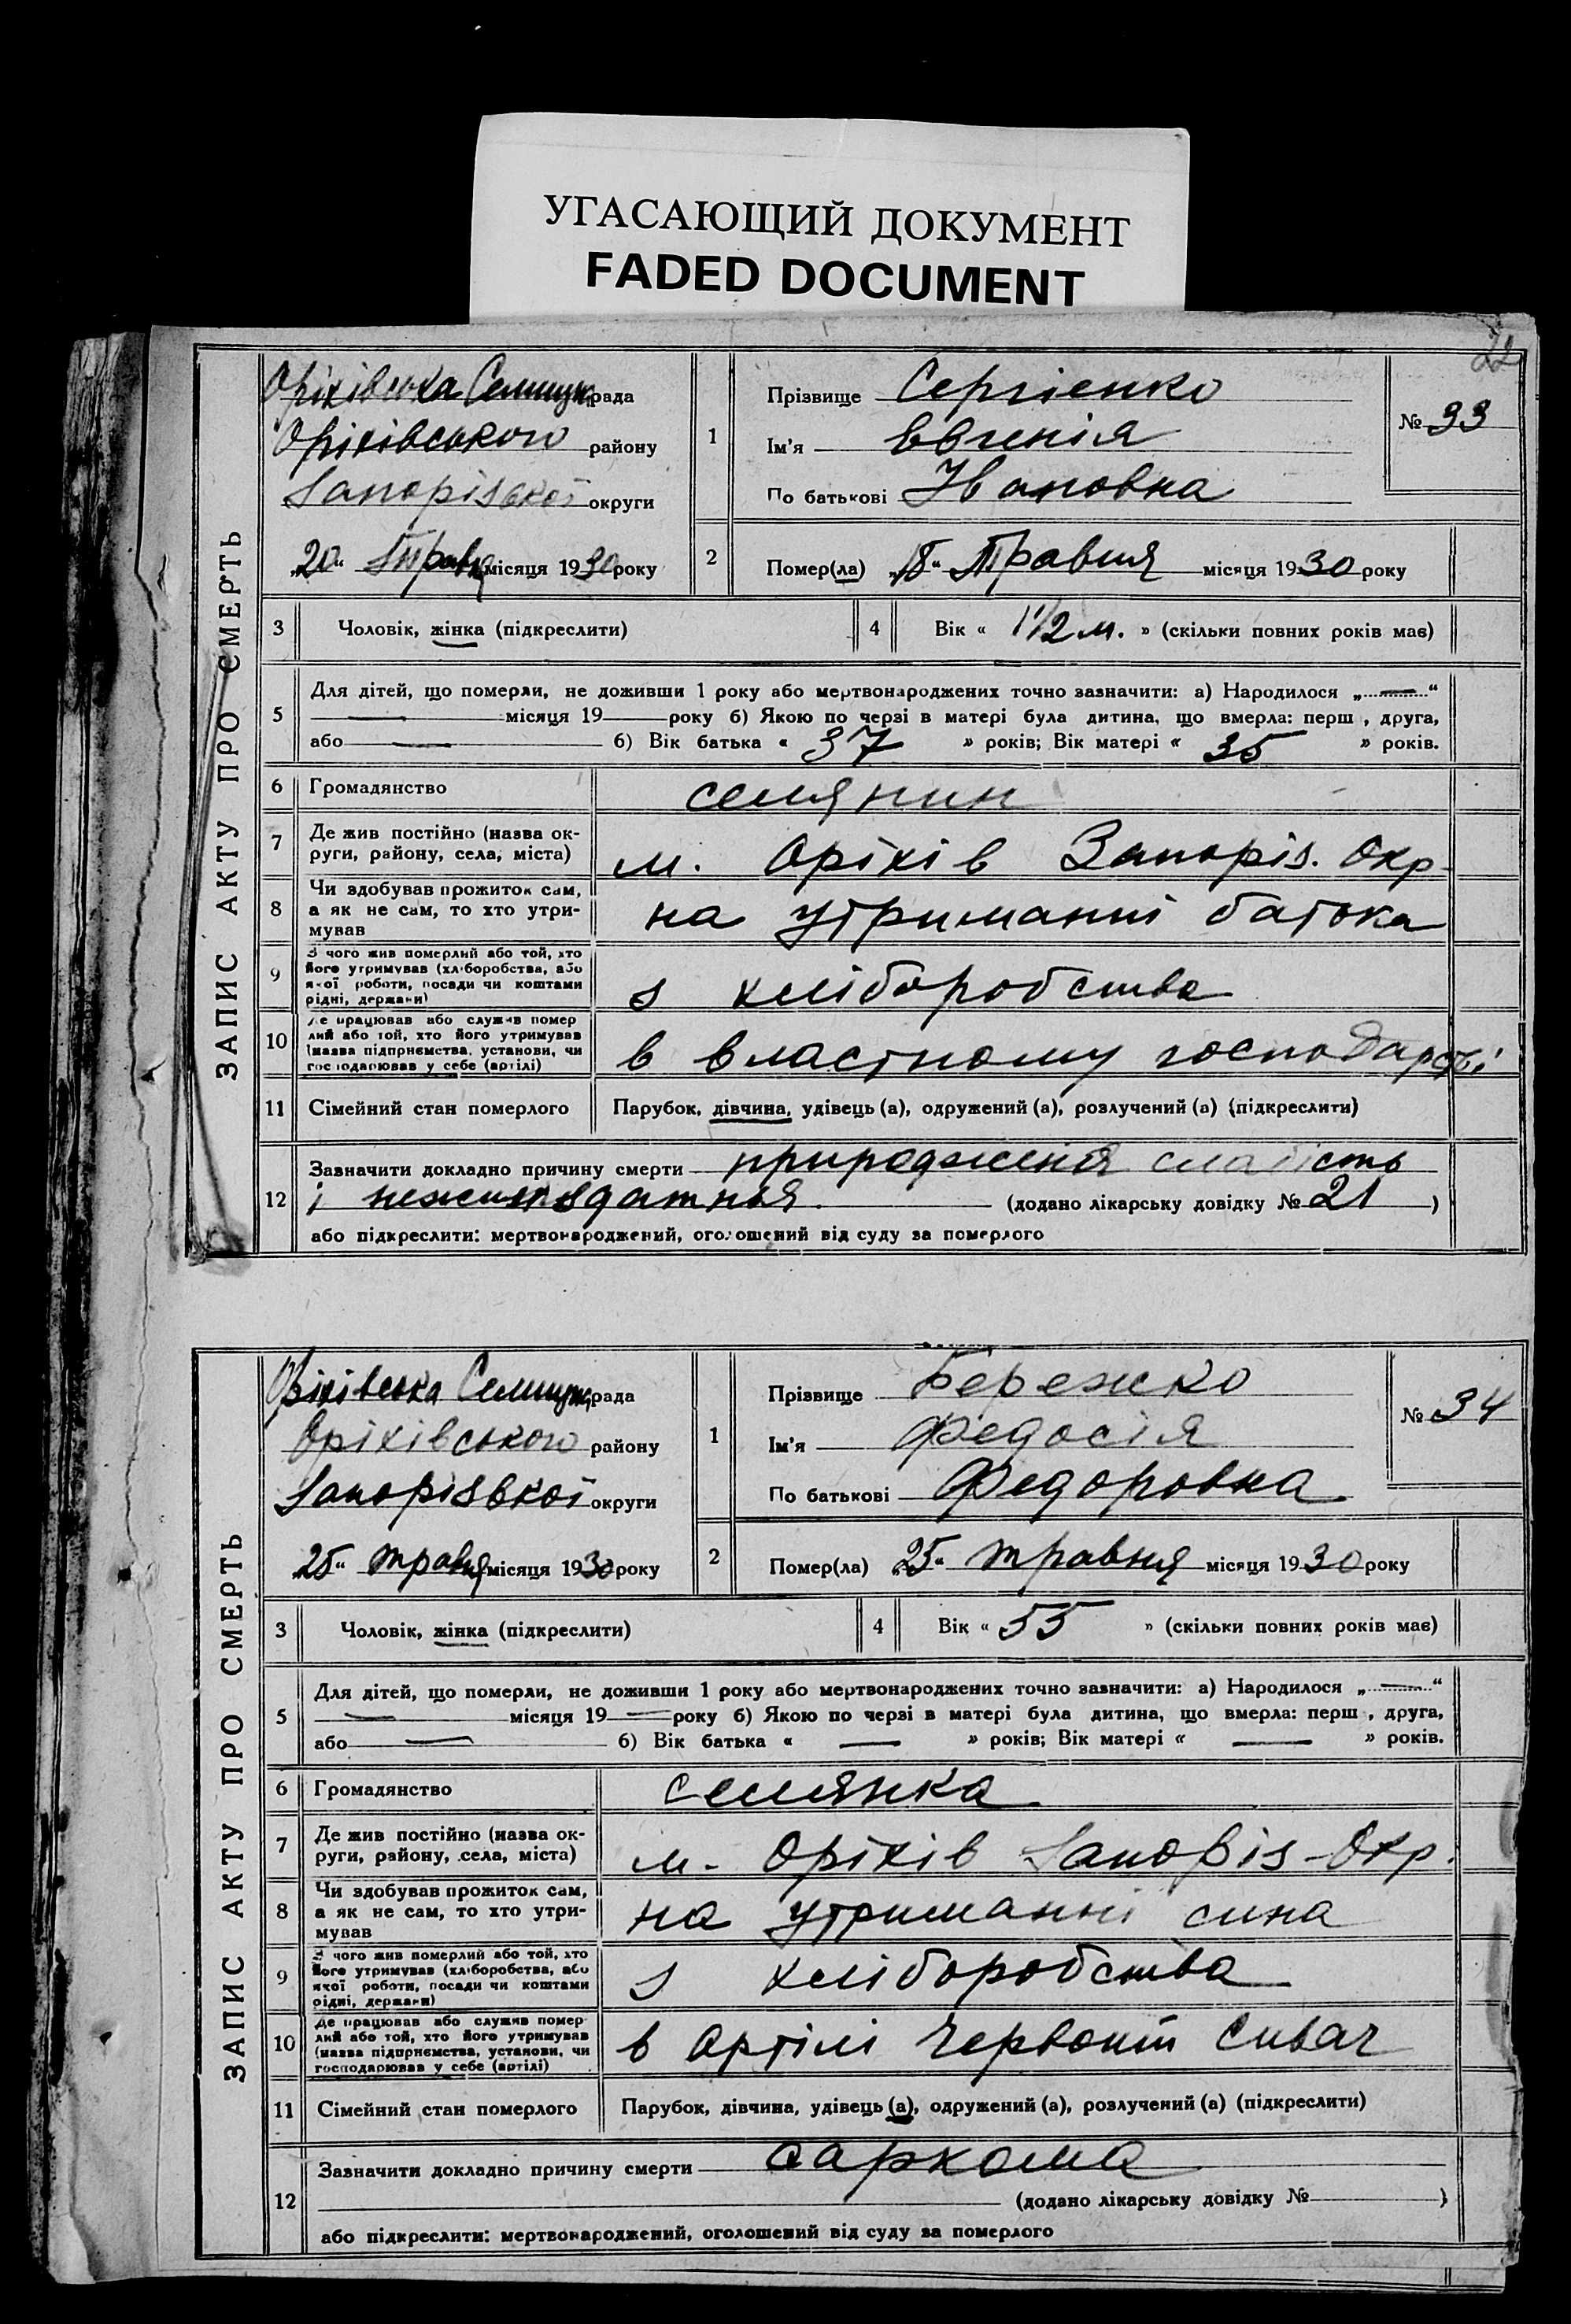 УГАСАЮЩИЙ ДОКУМЕНТ
FADED DOCUMENT
22
ЗАПИС АКТУ ПРО СМЕРТЬ
Оріхівська Селищн. рада
Оріхівського району
Запорізької округи
„20“ Травня місяця 1930 року
1
Прізвище Сергієнко
Ім'я Евгенія
По батькові Ивановна
№ 33
2
Помер(ла) „18“ Травня місяця 1930 року
3 Чоловік, жінка (підкреслити)
4 Вік « 1 1/2 м. » (скільки повних років має)
5 Для дітей, що померли, не доживши 1 року або мертвонароджених точно зазначити: а) Народилося „—“
— місяця 19 — року б) Якою по черзі в матері була дитина, що вмерла: перш , друга,
або — б) Вік батька « 37 » років; Вік матері « 35 » років.
6 Громадянство селянин
7 Де жив постійно (назва ок-
руги, району, села, міста) м. Оріхів Запоріз. Окр.
8 Чи здобував прожиток сам,
а як не сам, то хто утри-
мував на утриманні батька
9 З чого жив померлий або той, хто
його утримував (хліборобства, або
якої роботи, посади чи коштами
рідні, держави) з хліборобства
10 Де працював або служив помер
лий або той, хто його утримував
(назва підприємства, установи, чи
господарював у себе (артілі) в властному господарстві
11 Сімейний стан померлого Парубок, дівчина, удівець (а), одружений (а), розлучений (а) (підкреслити)
12 Зазначити докладно причину смерти природжена слабість
і (додано лікарську довідку № 21 )
або підкреслити: мертвонароджений, оголошений від суду за померлого
ЗАПИС АКТУ ПРО СМЕРТЬ
Оріхівська Селищн. рада
Оріхівського району
Запорізької округи
„25“ травня місяця 1930 року
1
Прізвище Бережко
Ім'я Федосія
По батькові Федоровна
№ 34
2
Помер(ла) „25“ травня місяця 1930 року
3 Чоловік, жінка (підкреслити)
4 Вік « 55 » (скільки повних років має)
5 Для дітей, що померли, не доживши 1 року або мертвонароджених точно зазначити: а) Народилося „—“
— місяця 19 — року б) Якою по черзі в матері була дитина, що вмерла: перш , друга,
або — б) Вік батька « — » років; Вік матері « — » років.
6 Громадянство селянка
7 Де жив постійно (назва ок-
руги, району, села, міста) м. Оріхів Запоріз. Окр.
8 Чи здобував прожиток сам,
а як не сам, то хто утри-
мував на утриманні сина
9 З чого жив померлий або той, хто
його утримував (хліборобства, або
якої роботи, посади чи коштами
рідні, держави) з хліборобства
10 Де працював або служив помер
лий або той, хто його утримував
(назва підприємства, установи, чи
господарював у себе (артілі) в Артілі Червоний Сивач
11 Сімейний стан померлого Парубок, дівчина, удівець (а), одружений (а), розлучений (а) (підкреслити)
12 Зазначити докладно причину смерти саркома
(додано лікарську довідку № )
або підкреслити: мертвонароджений, оголошений від суду за померлого